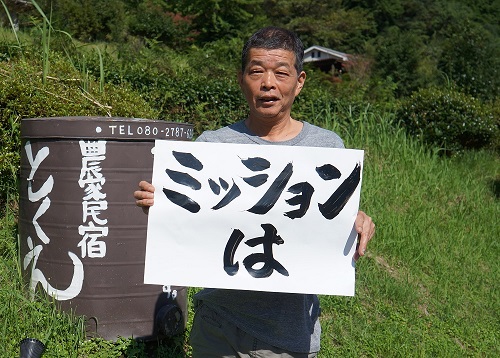 TEL 080-2787-
農家民宿
とくえん
ミッション
は